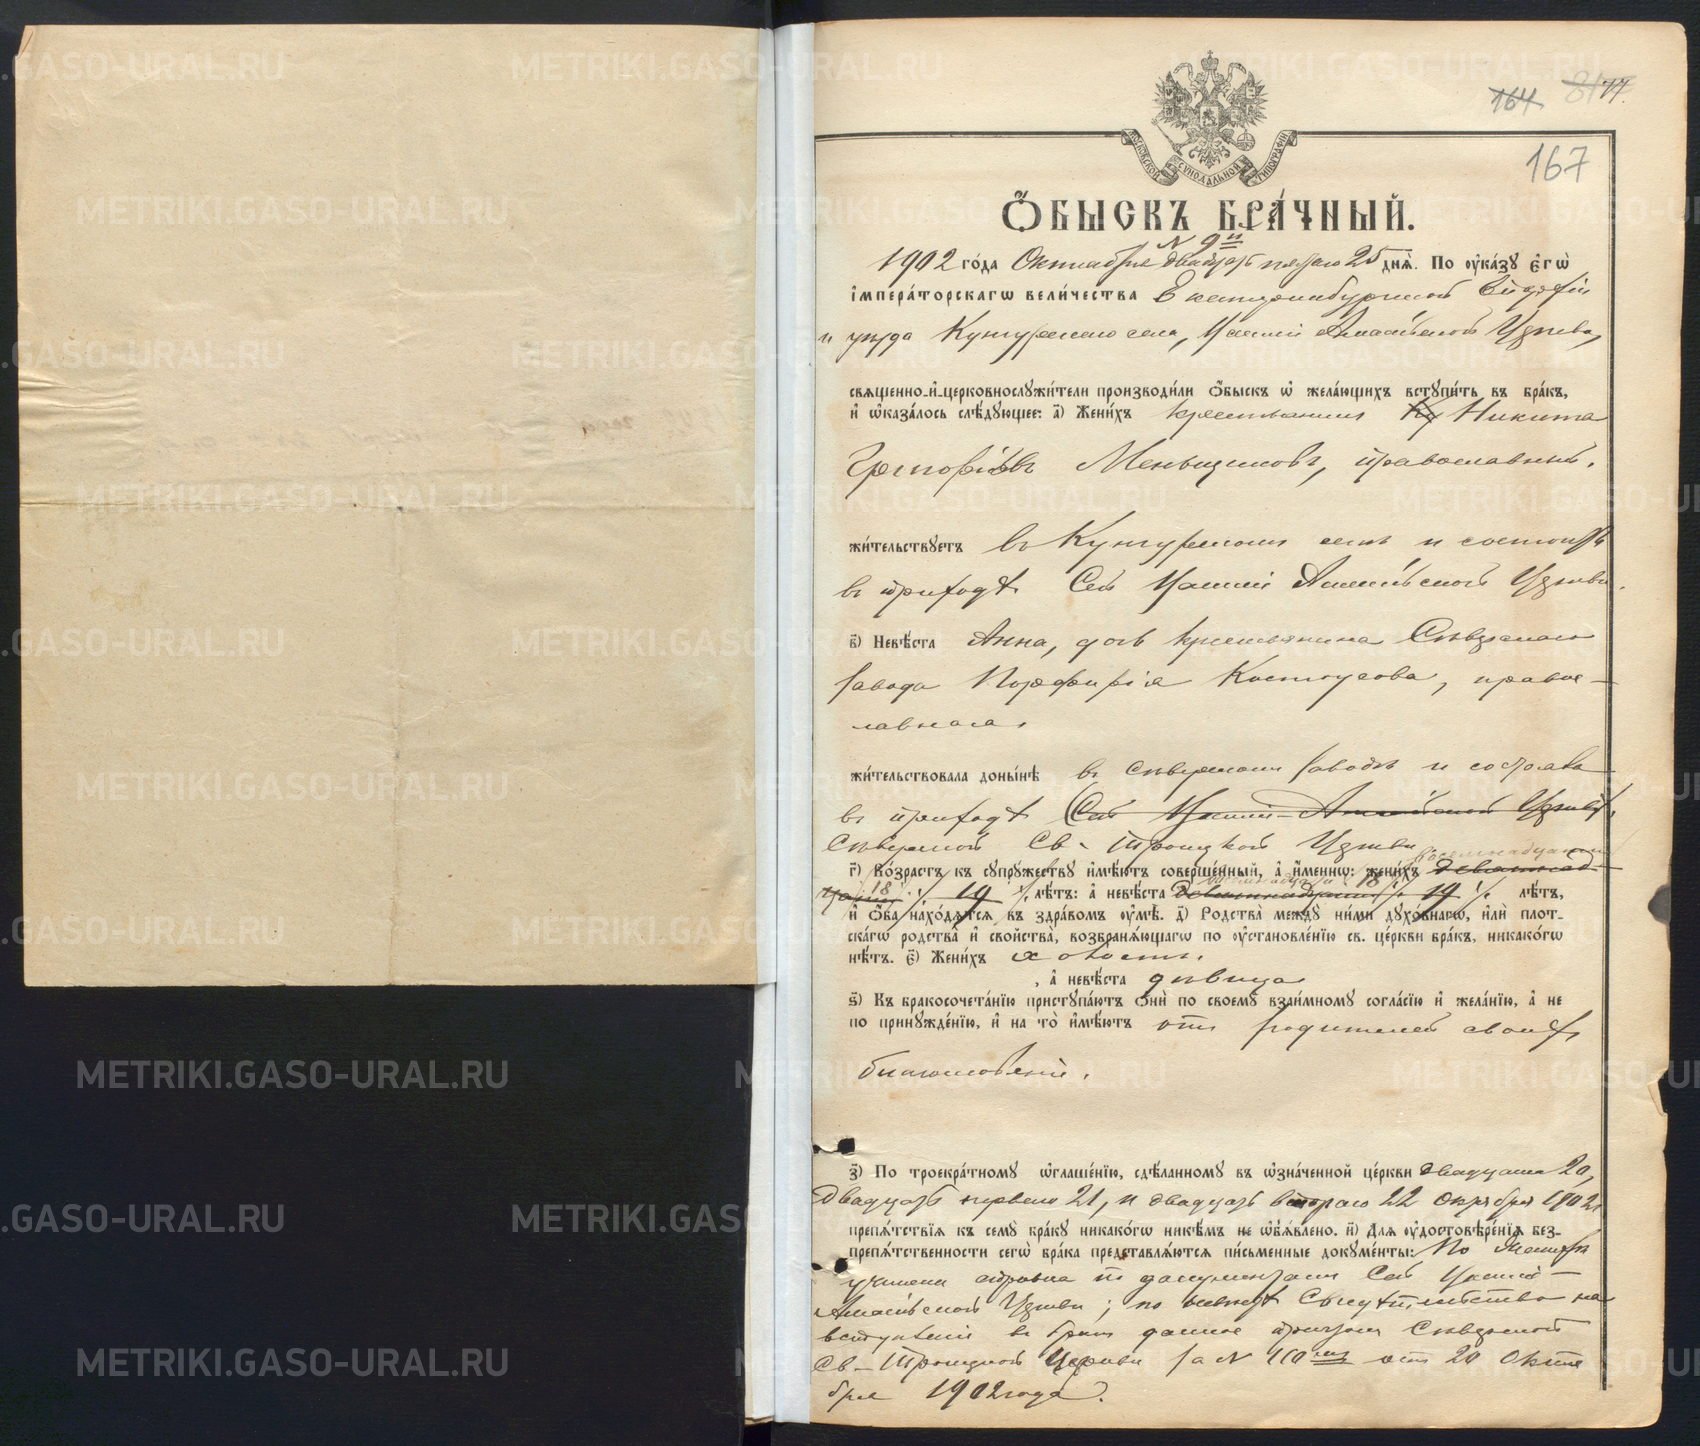 164 81 77.
167
МОСКОВСКОЙ СѴНОДАЛЬНОЙ ТИПОГРАФІИ
Ѻ҆БЫСКЪ БРА́ЧНЫЙ.
N 9й
1902 го́да Октября двадцать пятаго 25 днѧ̀. По ᲂу҆ка́зꙋ є҆гѡ̀
і҆мпера́торскагѡ вели́чества Екатеринбургской Епархіи
и уѣзда Кунгурскаго села, Церкви,
свѧще́нно-и҆-церковнослꙋжи́тели производи́ли ѻ҆́быскъ ѡ҆ жела́ющихъ встꙋпи́ть въ бра́къ,
и҆ ѡ҆каза́лось слѣ́дꙋющее: а҃) Жени́хъ крестьянинъ Никита
Григоріевъ Меньщиковъ, православный,
жи́тельствꙋетъ въ Кунгурскомъ селѣ и состоитъ
въ приходѣ Сей Церкви.
в҃) Невѣ́ста Анна, дочь крестьянина Сѣверскаго
завода Порфирія Костоусова, право-
славнаго,
жи́тельствовала доны́нѣ въ Сѣверскомъ заводѣ и состояла
въ приходѣ Сей Церкви,
Сѣверской Св. Троицкой Церкви
г҃) Во́зрастъ къ сꙋпрꙋ́жествꙋ и҆мѣ́ютъ соверше́нный, а҆ и҆́меннѡ: жени́хъ девятнад- восемнадцати
цати 18 19 лѣ́тъ: а҆ невѣ́ста девятнадцати 18 19 лѣ́тъ,
и҆ ѻ҆́ба нахо́дѧтсѧ въ здра́вомъ ᲂу҆мѣ̀. д҃) Родства̀ междꙋ̀ ни́ми дꙋхо́внагѡ, и҆лѝ плот-
ска́гѡ родства̀ и҆ сво́йства̀, возбранѧ́ющагѡ по ᲂу҆становле́нїю св. це́ркви бра́къ, никако́гѡ
нѣ́тъ. є҃) Жени́хъ холостъ,
, а҆ невѣ́ста дѣвица
ѕ҃) Къ бракосочета́нїю пристꙋпа́ютъ ѻ҆нѝ по своемꙋ̀ взаи́мномꙋ согла́сїю и҆ жела́нїю, а҆ не
по принꙋжде́нїю, и҆ на то̀ и҆мѣ́ютъ отъ родителей своихъ
благословеніе.
з҃) По троекра́тномꙋ ѡ҆глаше́нїю, сдѣ́ланномꙋ въ ѡ҆зна́ченной це́ркви двадцатаго 20,
двадцать перваго 21, и двадцать втораго 22 Октября 1902 г.
препѧ́тствїѧ къ семꙋ̀ бра́кꙋ никако́гѡ никѣ́мъ не ѡ҆б̾ѧ́влено. и҃) Для ᲂу҆достовѣре́нїѧ без-
препѧ́тственности сегѡ̀ бра́ка представлѧ́ютсѧ пи́сьменные докꙋме́нты: По
жениха справка по документамъ Сей
Церкви; по невѣстѣ Свидѣтельство на
вступленіе въ бракъ данное причтомъ Сѣверской
Св.-Троицкой Церкви за N 110 отъ 20 Октя
бря 1902 года.
METRIKI.GASO-URAL.RU